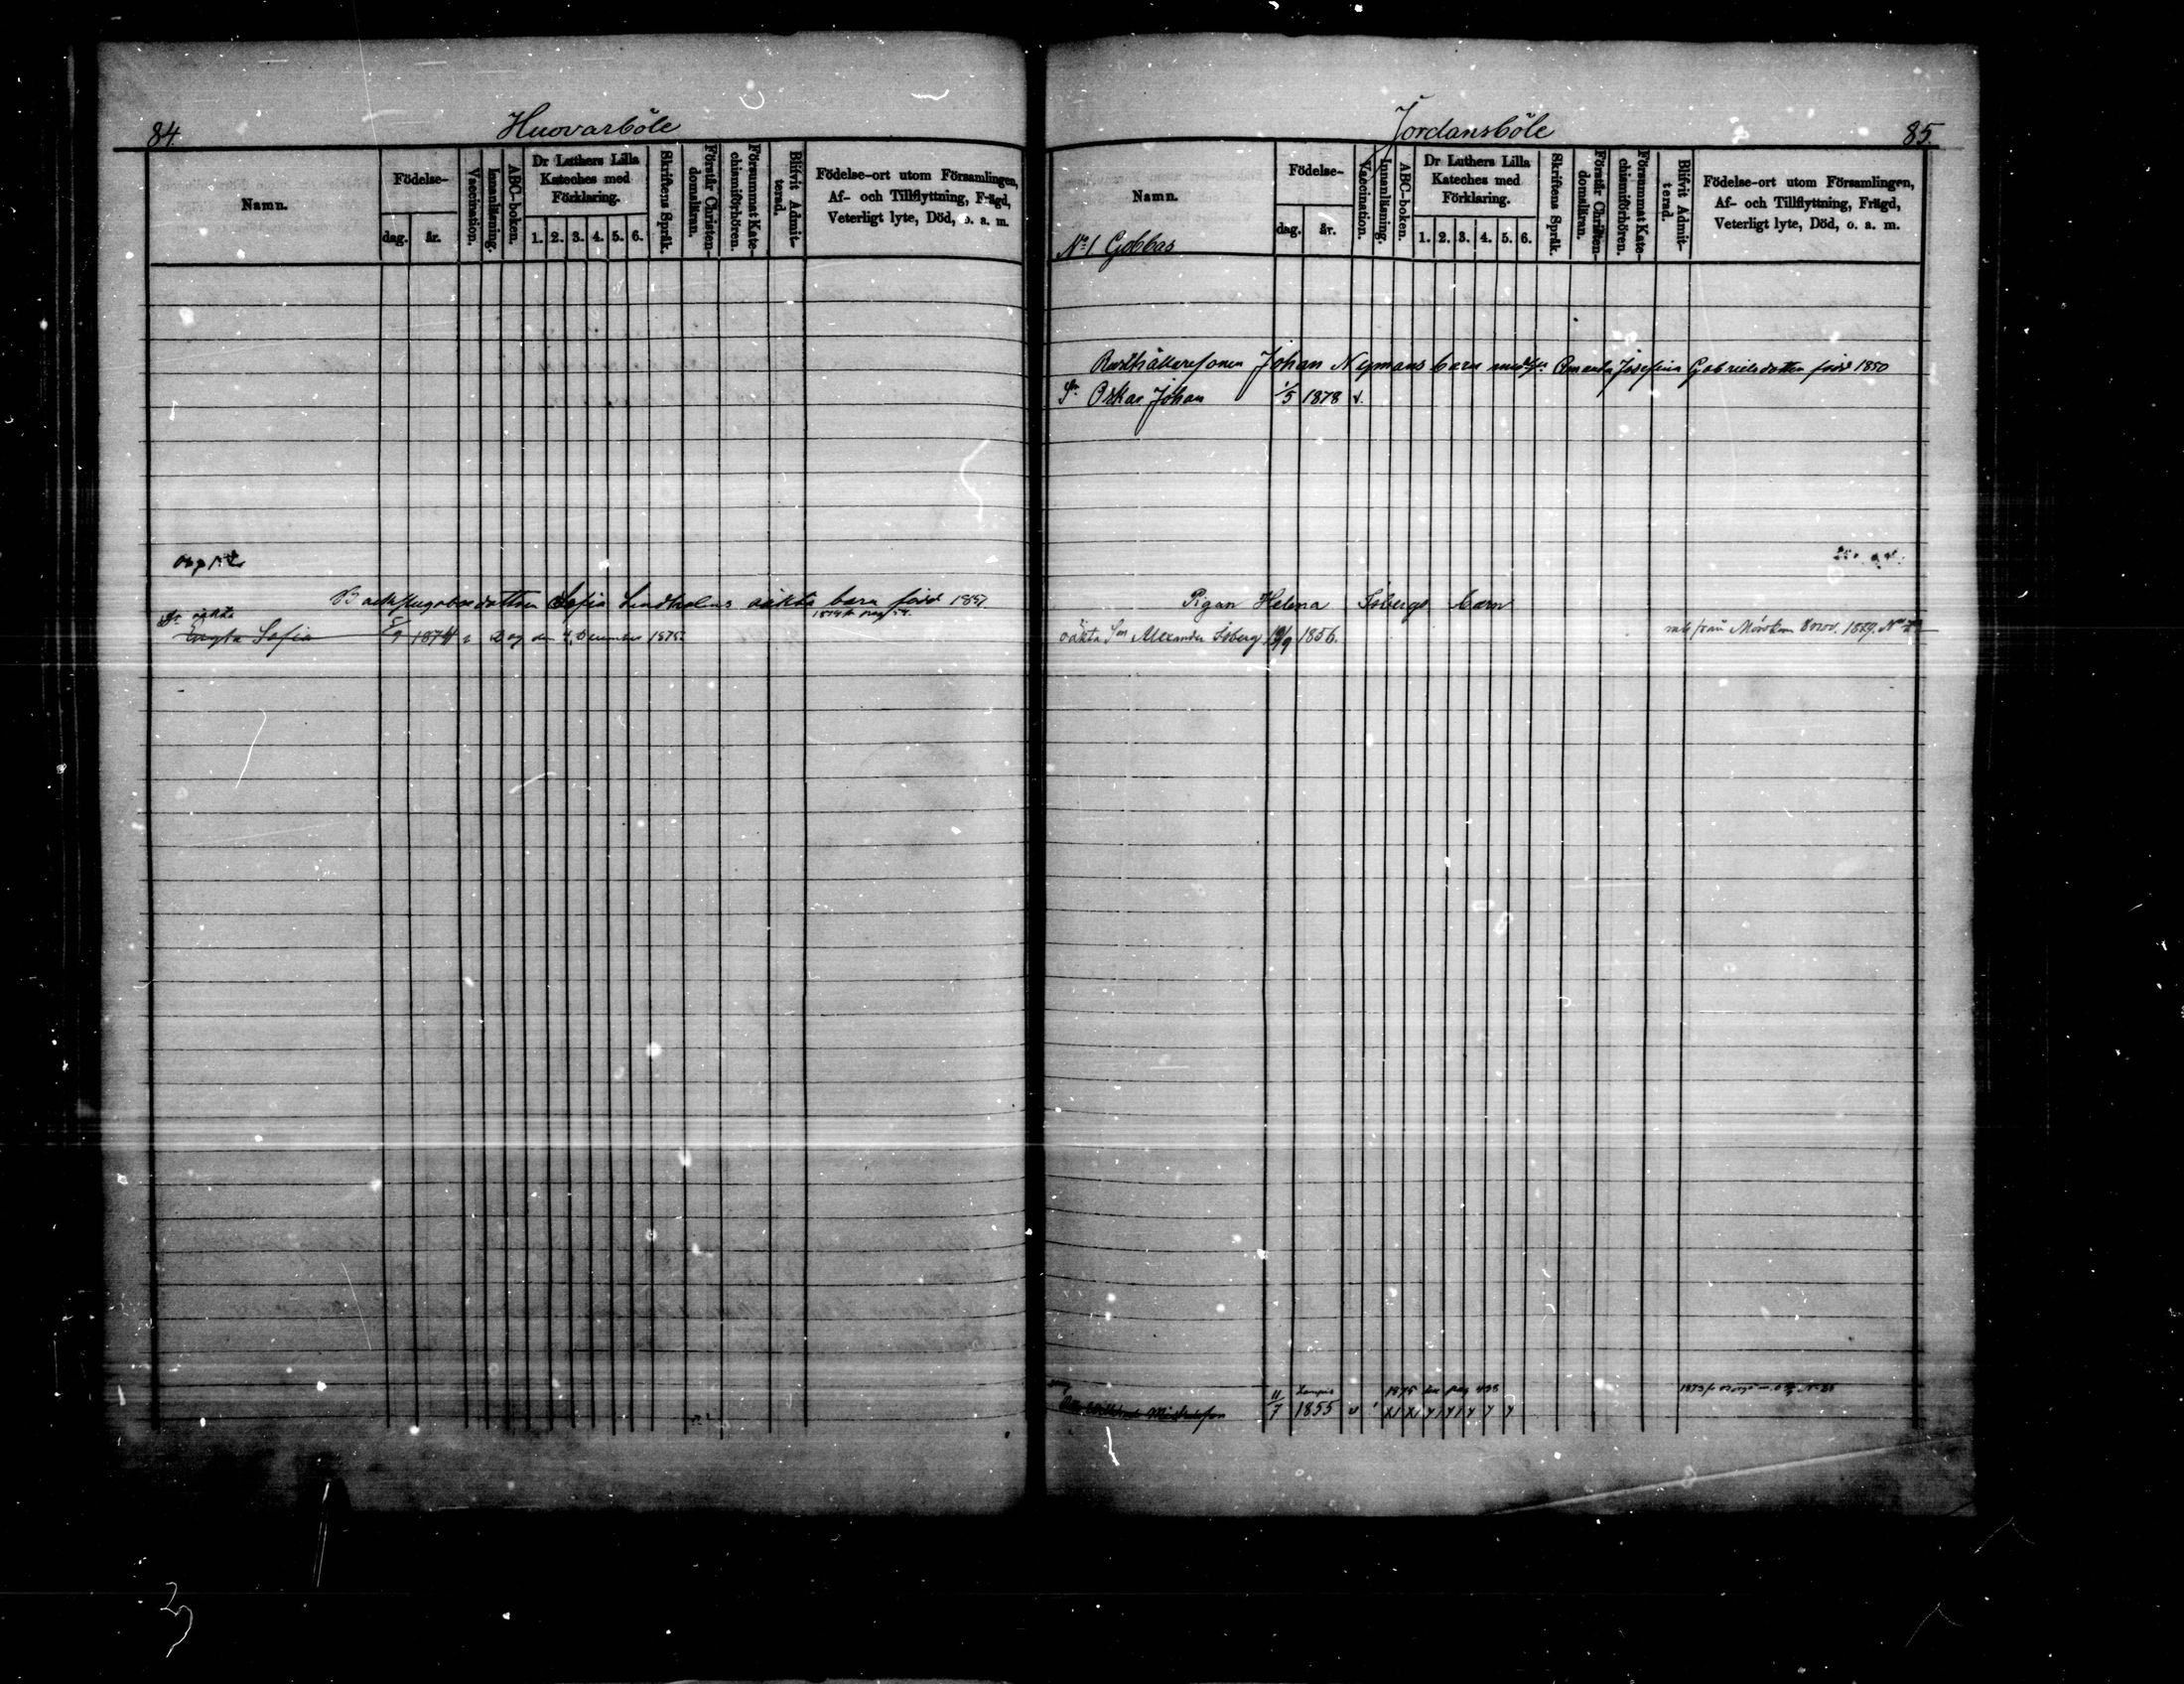 84.
Huovarböle
Namn.
Födelse-
dag.
år.
Vaccination.
Innanläsning.
ABC-boken.
Dr Luthers Lilla
Kateches med
Förklaring.
1. 2. 3. 4. 5. 6.
Skriftens Språk.
Förstår Christen-
domsläran.
Försummat Kate-
chismiförhören.
Blifvit Admit-
terad.
Födelse-ort utom Församlingen,
Af- och Tillflyttning, Frägd,
Veterligt lyte, Död, o. a. m.
dottren Sofia Lindholms oäkta barn född 1851.
Dr oäkta
Sofia 5/9 1874 Dog den 4 December 1875.
Jordansböle
85.
Namn.
No 1. Gobbas
Födelse-
dag.
år.
Vaccination.
Innanläsning.
ABC-boken.
Dr Luthers Lilla
Kateches med
Förklaring.
1. 2. 3. 4. 5. 6.
Skriftens Språk.
Förstår Christen-
domsläran.
Försummat Kate-
chismiförhören.
Blifvit Admit-
terad.
Födelse-ort utom Församlingen,
Af- och Tillflyttning, Frägd,
Veterligt lyte, Död, o. a. m.
Rusthållaresonen Johan Nymans barn med Amanda Josefina Gabrielsdotter född 1850
Sn Oskar Johan 1/5 1878 v.
Pigan Helena Isbergs barn
oäkta Sn Alexander Isberg /9 1856. från 1879. No
1875 pag
11/7 1855 v